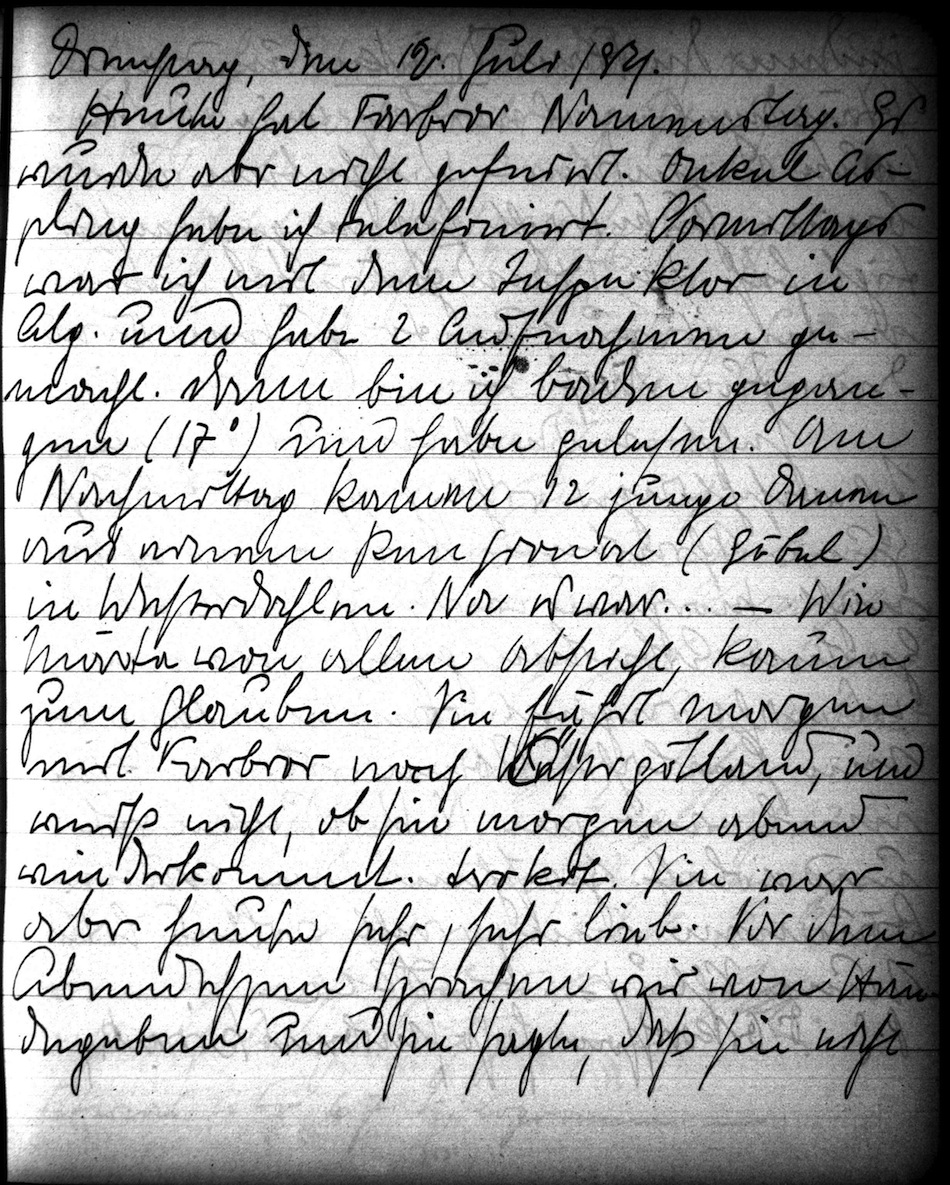 Dienstag, den 19. Juli 1921.
Heute hat Farbror Namenstag. Er
wurde aber nicht gefeiert. Onkel As-
pling habe ich telefoniert. Vormittags
war ich mit dem Inspektor in
Alg. und habe 2 Aufnahmen ge-
macht. Dann bin ich baden gegan-
gen (17°) und habe gelesen. Am
Nachmittag kamen 12 junge Damen
aus einem Pensionat (Gäbel)
in Westerdahlen. Na es war... — Wie
Märta von allem absieht, kaum
zum Glauben. Sie fährt morgen
mit Farbror nach Östergötland, und
weiß nicht, ob sie morgen abend
wiederkommt. Sie war
aber heute sehr, sehr lieb. Vor dem
Abendessen sprachen wir von
und sie sagte, daß sie nicht